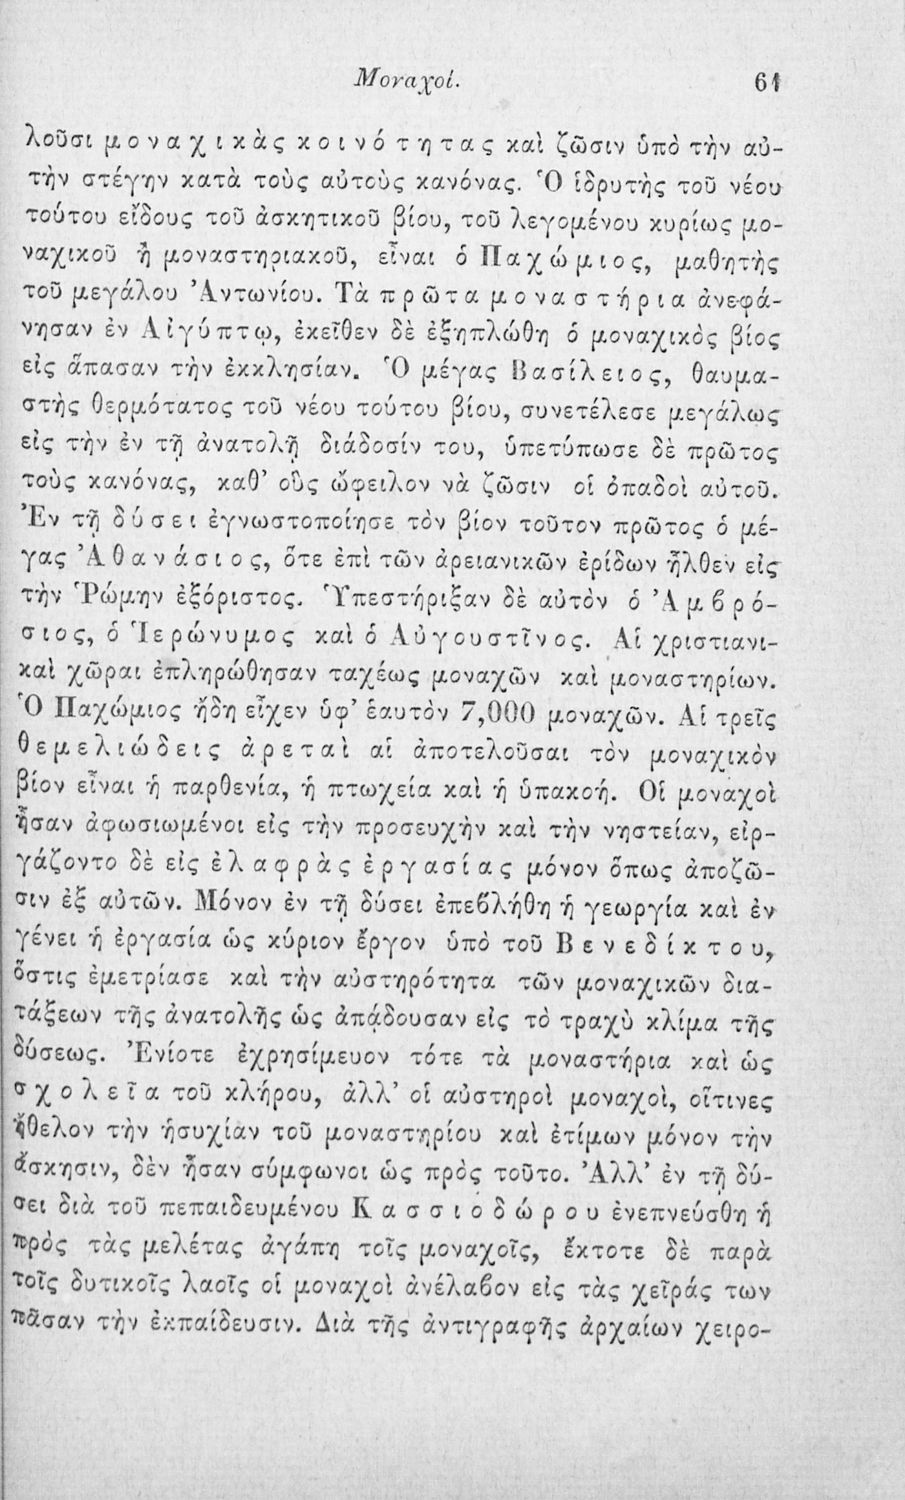 Μοναχοί. 61
λοῦσι μοναχικὰς κοινότητας καὶ ζῶσιν ὑπὸ τὴν αὐ-
τὴν στέγην κατὰ τοὺς αὐτοὺς κανόνας. Ὁ ἱδρυτὴς τοῦ νέου
τούτου εἴδους τοῦ ἀσκητικοῦ βίου, τοῦ λεγομένου κυρίως μο-
ναχικοῦ ἢ μοναστηριακοῦ, εἶναι ὁ Παχώμιος, μαθητὴς
τοῦ μεγάλου Ἀντωνίου. Τὰ πρῶτα μοναστήρια ἀνεφά-
νησαν ἐν Αἰγύπτῳ, ἐκεῖθεν δὲ ἐξηπλώθη ὁ μοναχικὸς βίος
εἰς ἅπασαν τὴν ἐκκλησίαν. Ὁ μέγας Βασίλειος, θαυμα-
στὴς θερμότατος τοῦ νέου τούτου βίου, συνετέλεσε μεγάλως
εἰς τὴν ἐν τῇ ἀνατολῇ διάδοσίν του, ὑπετύπωσε δὲ πρῶτος
τοὺς κανόνας, καθ' οὓς ὤφειλον νὰ ζῶσιν οἱ ὀπαδοὶ αὐτοῦ.
Ἐν τῇ δύσει ἐγνωστοποίησε τὸν βίον τοῦτον πρῶτος ὁ μέ-
γας Ἀθανάσιος, ὅτε ἐπὶ τῶν ἀρειανικῶν ἐρίδων ἦλθεν εἰς
τὴν Ῥώμην ἐξόριστος. Ὑπεστήριξαν δὲ αὐτὸν ὁ Ἀμβρό-
σιος, ὁ Ἱερώνυμος καὶ ὁ Αὐγουστῖνος. Αἱ χριστιανι-
καὶ χῶραι ἐπληρώθησαν ταχέως μοναχῶν καὶ μοναστηρίων.
Ὁ Παχώμιος ἤδη εἶχεν ὑφ' ἑαυτὸν 7,000 μοναχῶν. Αἱ τρεῖς
θεμελιώδεις ἀρεταὶ αἱ ἀποτελοῦσαι τὸν μοναχικὸν
βίον εἶναι ἡ παρθενία, ἡ πτωχεία καὶ ἡ ὑπακοή. Οἱ μοναχοὶ
ἦσαν ἀφωσιωμένοι εἰς τὴν προσευχὴν καὶ τὴν νηστείαν, εἰρ-
γάζοντο δὲ εἰς ἐλαφρὰς ἐργασίας μόνον ὅπως ἀποζῶ-
σιν ἐξ αὐτῶν. Μόνον ἐν τῇ δύσει ἐπεβλήθη ἡ γεωργία καὶ ἐν
γένει ἡ ἐργασία ὡς κύριον ἔργον ὑπὸ τοῦ Βενεδίκτου,
ὅστις ἐμετρίασε καὶ τὴν αὐστηρότητα τῶν μοναχικῶν δια-
τάξεων τῆς ἀνατολῆς ὡς ἀπᾴδουσαν εἰς τὸ τραχὺ κλίμα τῆς
δύσεως. Ἐνίοτε ἐχρησίμευον τότε τὰ μοναστήρια καὶ ὡς
σχολεῖα τοῦ κλήρου, ἀλλ' οἱ αὐστηροὶ μοναχοὶ, οἵτινες
ἤθελον τὴν ἡσυχίαν τοῦ μοναστηρίου καὶ ἐτίμων μόνον τὴν
ἄσκησιν, δὲν ἦσαν σύμφωνοι ὡς πρὸς τοῦτο. Ἀλλ' ἐν τῇ δύ-
σει διὰ τοῦ πεπαιδευμένου Κασσιοδώρου ἐνεπνεύσθη ἡ
πρὸς τὰς μελέτας ἀγάπη τοῖς μοναχοῖς, ἔκτοτε δὲ παρὰ
τοῖς δυτικοῖς λαοῖς οἱ μοναχοὶ ἀνέλαβον εἰς τὰς χεῖράς των
πᾶσαν τὴν ἐκπαίδευσιν. Διὰ τῆς ἀντιγραφῆς ἀρχαίων χειρο-